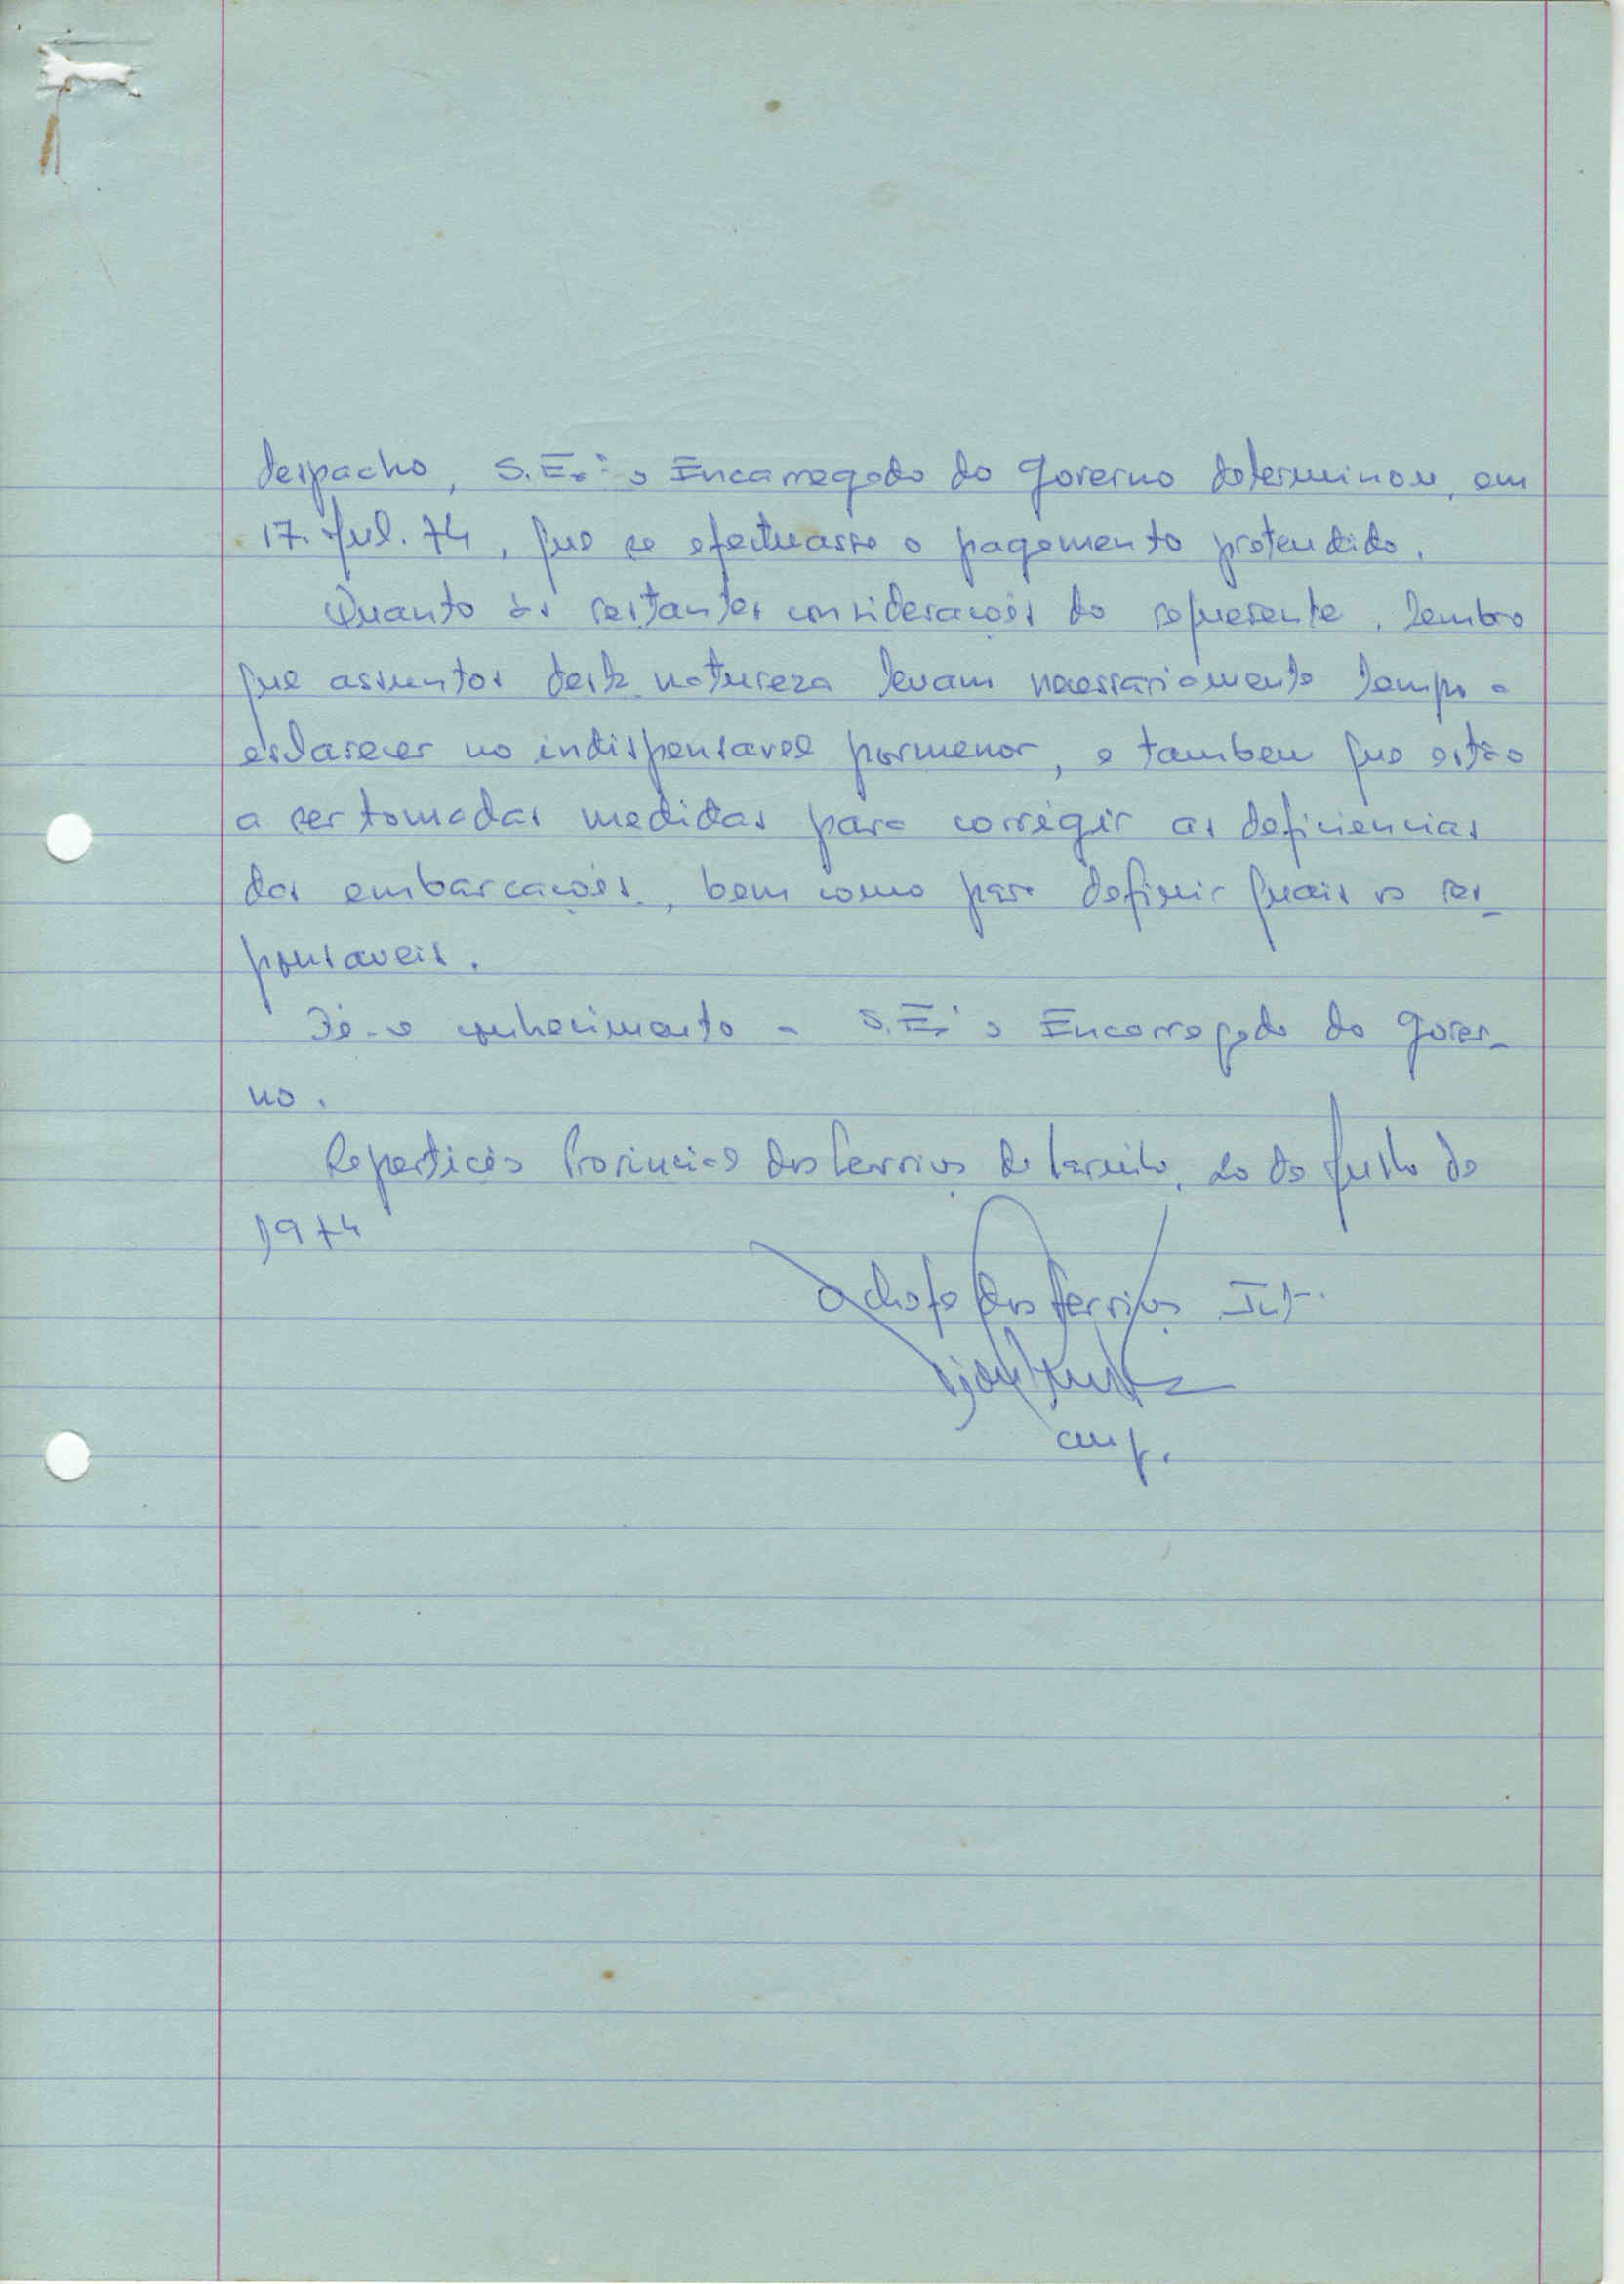 despacho, S. Ex.ª o Encarregado do Governo determinou, em
17. Jul. 74, que se efectuasse o pagamento pretendido.
Quanto às restantes considerações do requerente, lembro
que assuntos desta natureza levam necessariamente tempo a
esclarecer no indispensavel pormenor, e tambem que estão
a ser tomadas medidas para corrigir as deficiencias
das embarcações, bem como para definir quais os res-
ponsaveis.
Dê-se conhecimento a S. Ex.ª o Encarregado do Gover-
no.
Repartição Provincial dos Serviços de Marinha, 20 de Julho de
1974
O chefe dos Serviços Int.